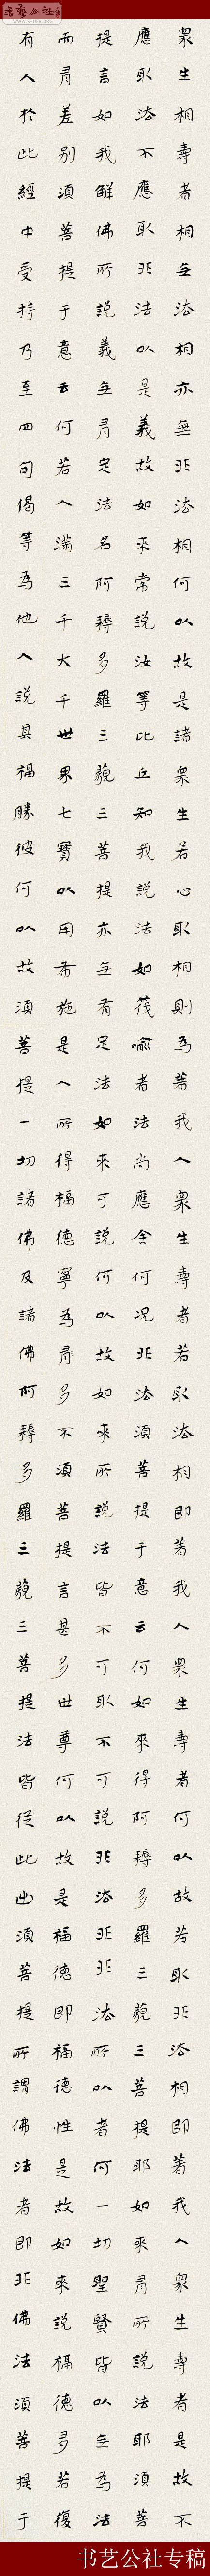 眾生相壽者相无法相亦無非法相何以故是諸眾生若心取相則為著我人眾生壽者若取法相即著我人眾生壽者何以故若取非法相即著我人眾生壽者是故不
應取法不應取非法以是義故如來常說汝等比丘知我說法如筏喻者法尚應舍何況非法須菩提于意云何如來得阿耨多羅三藐三菩提耶如來有所說法耶須菩
提言如我解佛所說義无有定法名阿耨多羅三藐三菩提亦无有定法如來可說何以故如來所說法皆不可取不可說非法非非法所以者何一切聖賢皆以无為法
而有差別須菩提于意云何若人滿三千大千世界七寶以用布施是人所得福德寧為有多不須菩提言甚多世尊何以故是福德即福德性是故如來說福德多若復
有人於此經中受持乃至四句偈等為他人說其福勝彼何以故須菩提一切諸佛及諸佛阿耨多羅三藐三菩提法皆從此出須菩提所謂佛法者即非佛法須菩提于
书艺公社专稿